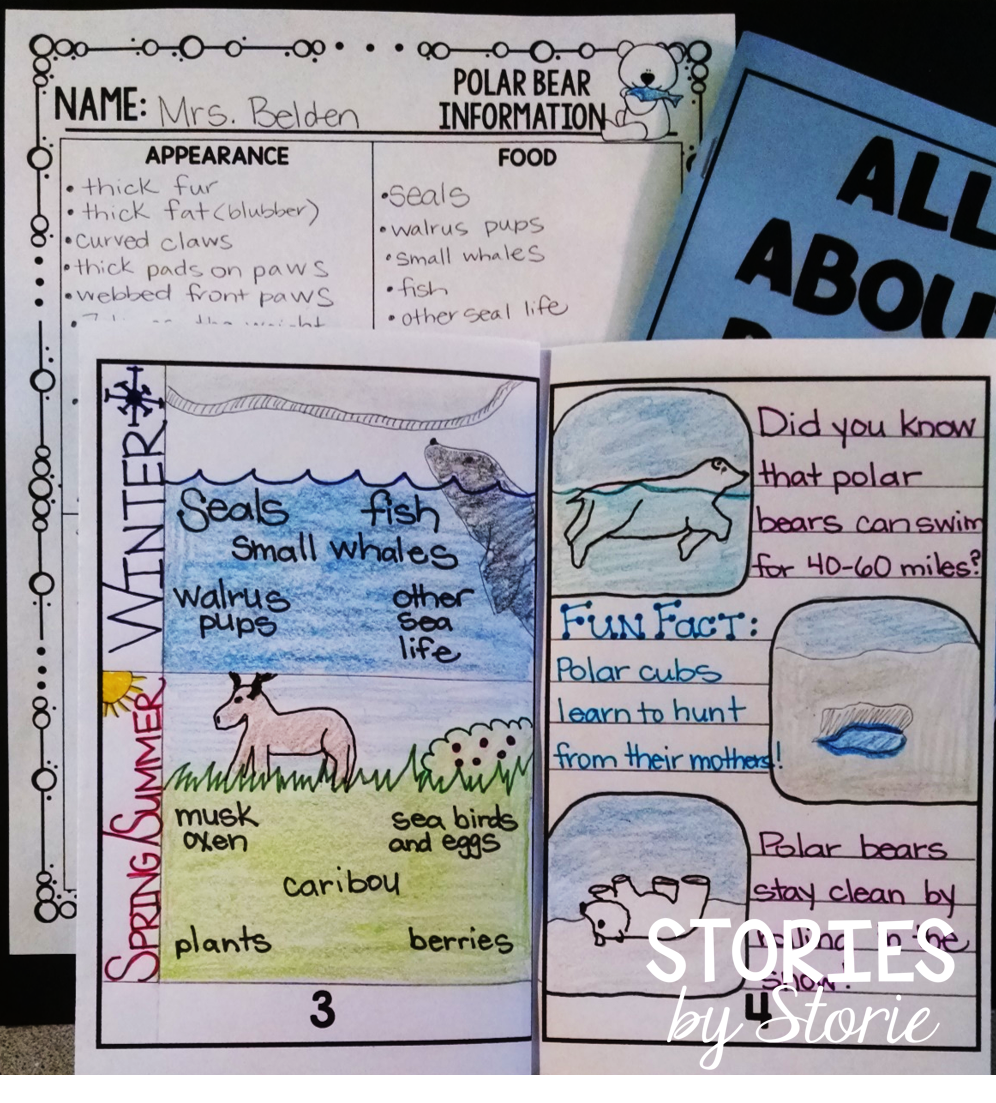 POLAR BEAR
INFORMATION
NAME: Mrs. Belden
APPEARANCE
• thick fur
• thick fat (blubber)
• curved claws
• thick pads on paws
• webbed front paws
FOOD
• seals
• walrus pups
• small whales
• fish
• other seal life
ALL
ABOU
WINTER
Seals fish
small whales
walrus other
pups sea
life
SPRING/SUMMER
musk sea birds
oxen and eggs
caribou
plants berries
3
Did you know
that polar
bears can swim
for 40-60 miles?
FUN FACT:
Polar cubs
learn to hunt
from their mothers!
Polar bears
stay clean by
rolling in the
snow!
4
STORIES
by Storie